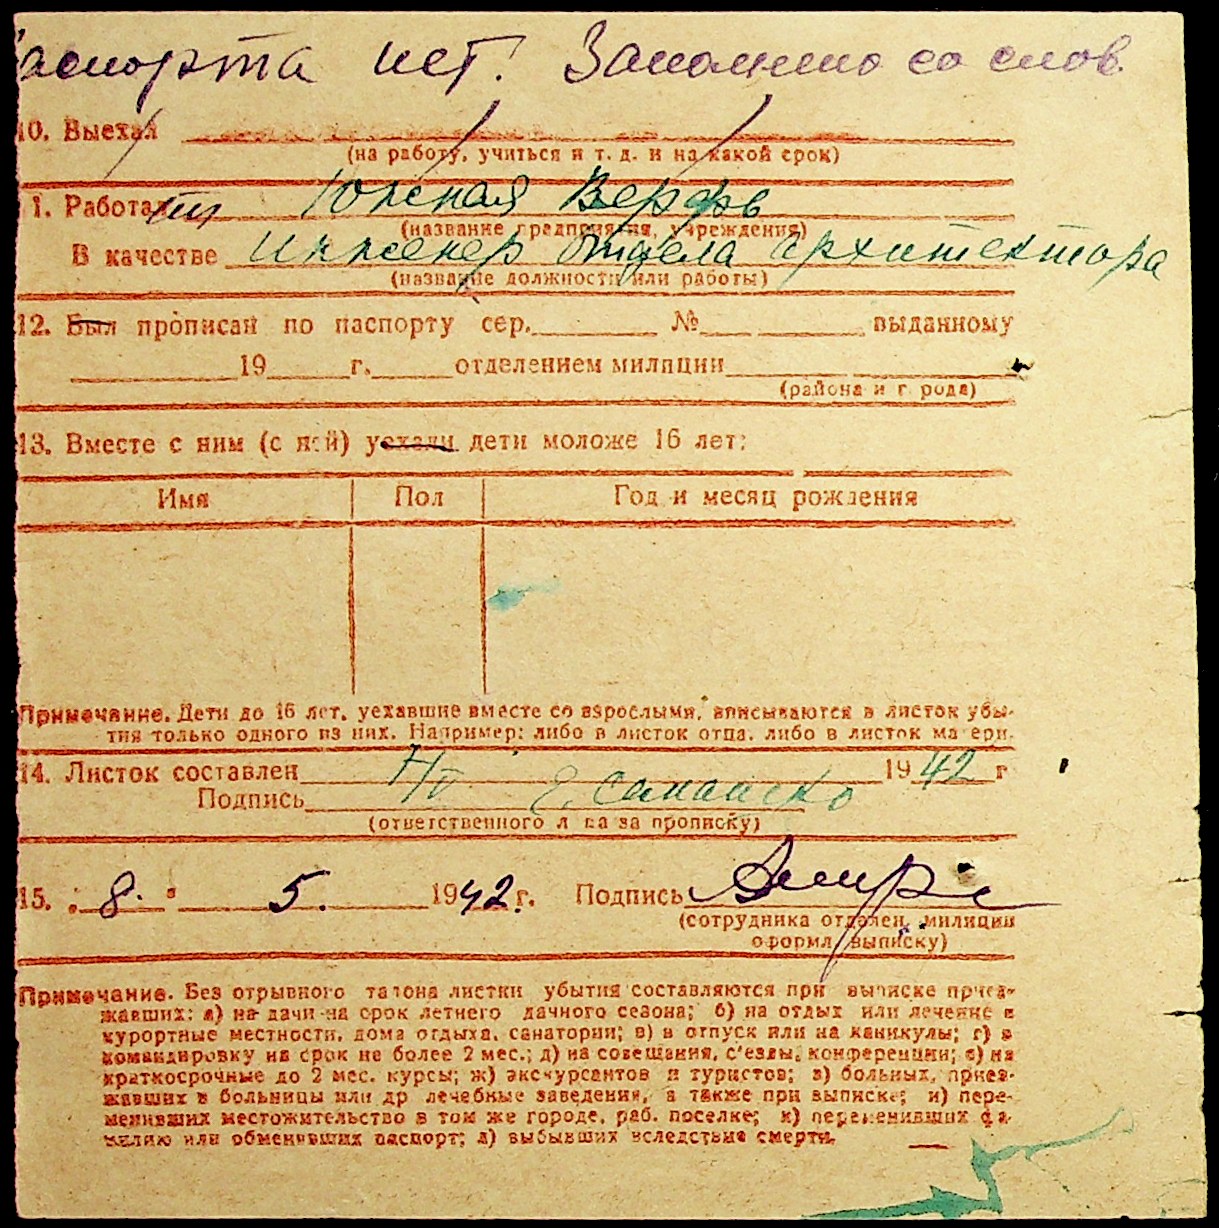 Паспорта нет. Заполнено со слов.
10. Выехал
(на работу, учиться и т. д. и на какой срок)
1. Работает Южная Верфь
(название предприятия, учреждения)
В качестве инженер отдела архитектора
(название должности или работы)
12. Был прописан по паспорту сер. № выданному
19 г. отделением милиции
(района и г рода)
13. Вместе с ним (с ней) уехали дети моложе 16 лет:
Имя Пол Год и месяц рождения
Примечание. Дети до 16 лет, уехавшие вместе со взрослыми, вписываются в листок убы-
тия только одного из них. Например: либо в листок отца, либо в листок ма ери.
14. Листок составлен 7/V 1942 г
Подпись
(ответственного л ца за прописку)
15. „8." 5. 1942 г. Подпись
(сотрудника отделен. милиции
оформл. выписку)
Примечание. Без отрывного талона листки убытия составляются при выписке приез-
жавших: а) на дачи на срок летнего дачного сезона; б) на отдых или лечение в
курортные местности, дома отдыха, санатории; в) в отпуск или на каникулы; г) в
командировку на срок не более 2 мес.; д) на совещания, с'езды, конференции; е) на
краткосрочные до 2 мес. курсы; ж) экскурсантов и туристов; з) больных, приез-
жавших в больницы или др лечебные заведения, а также при выписке; и) пере-
менивших местожительство в том же городе, раб. поселке; к) переменивших фа-
милию или обменивших паспорт; л) выбывших вследствие смерти.